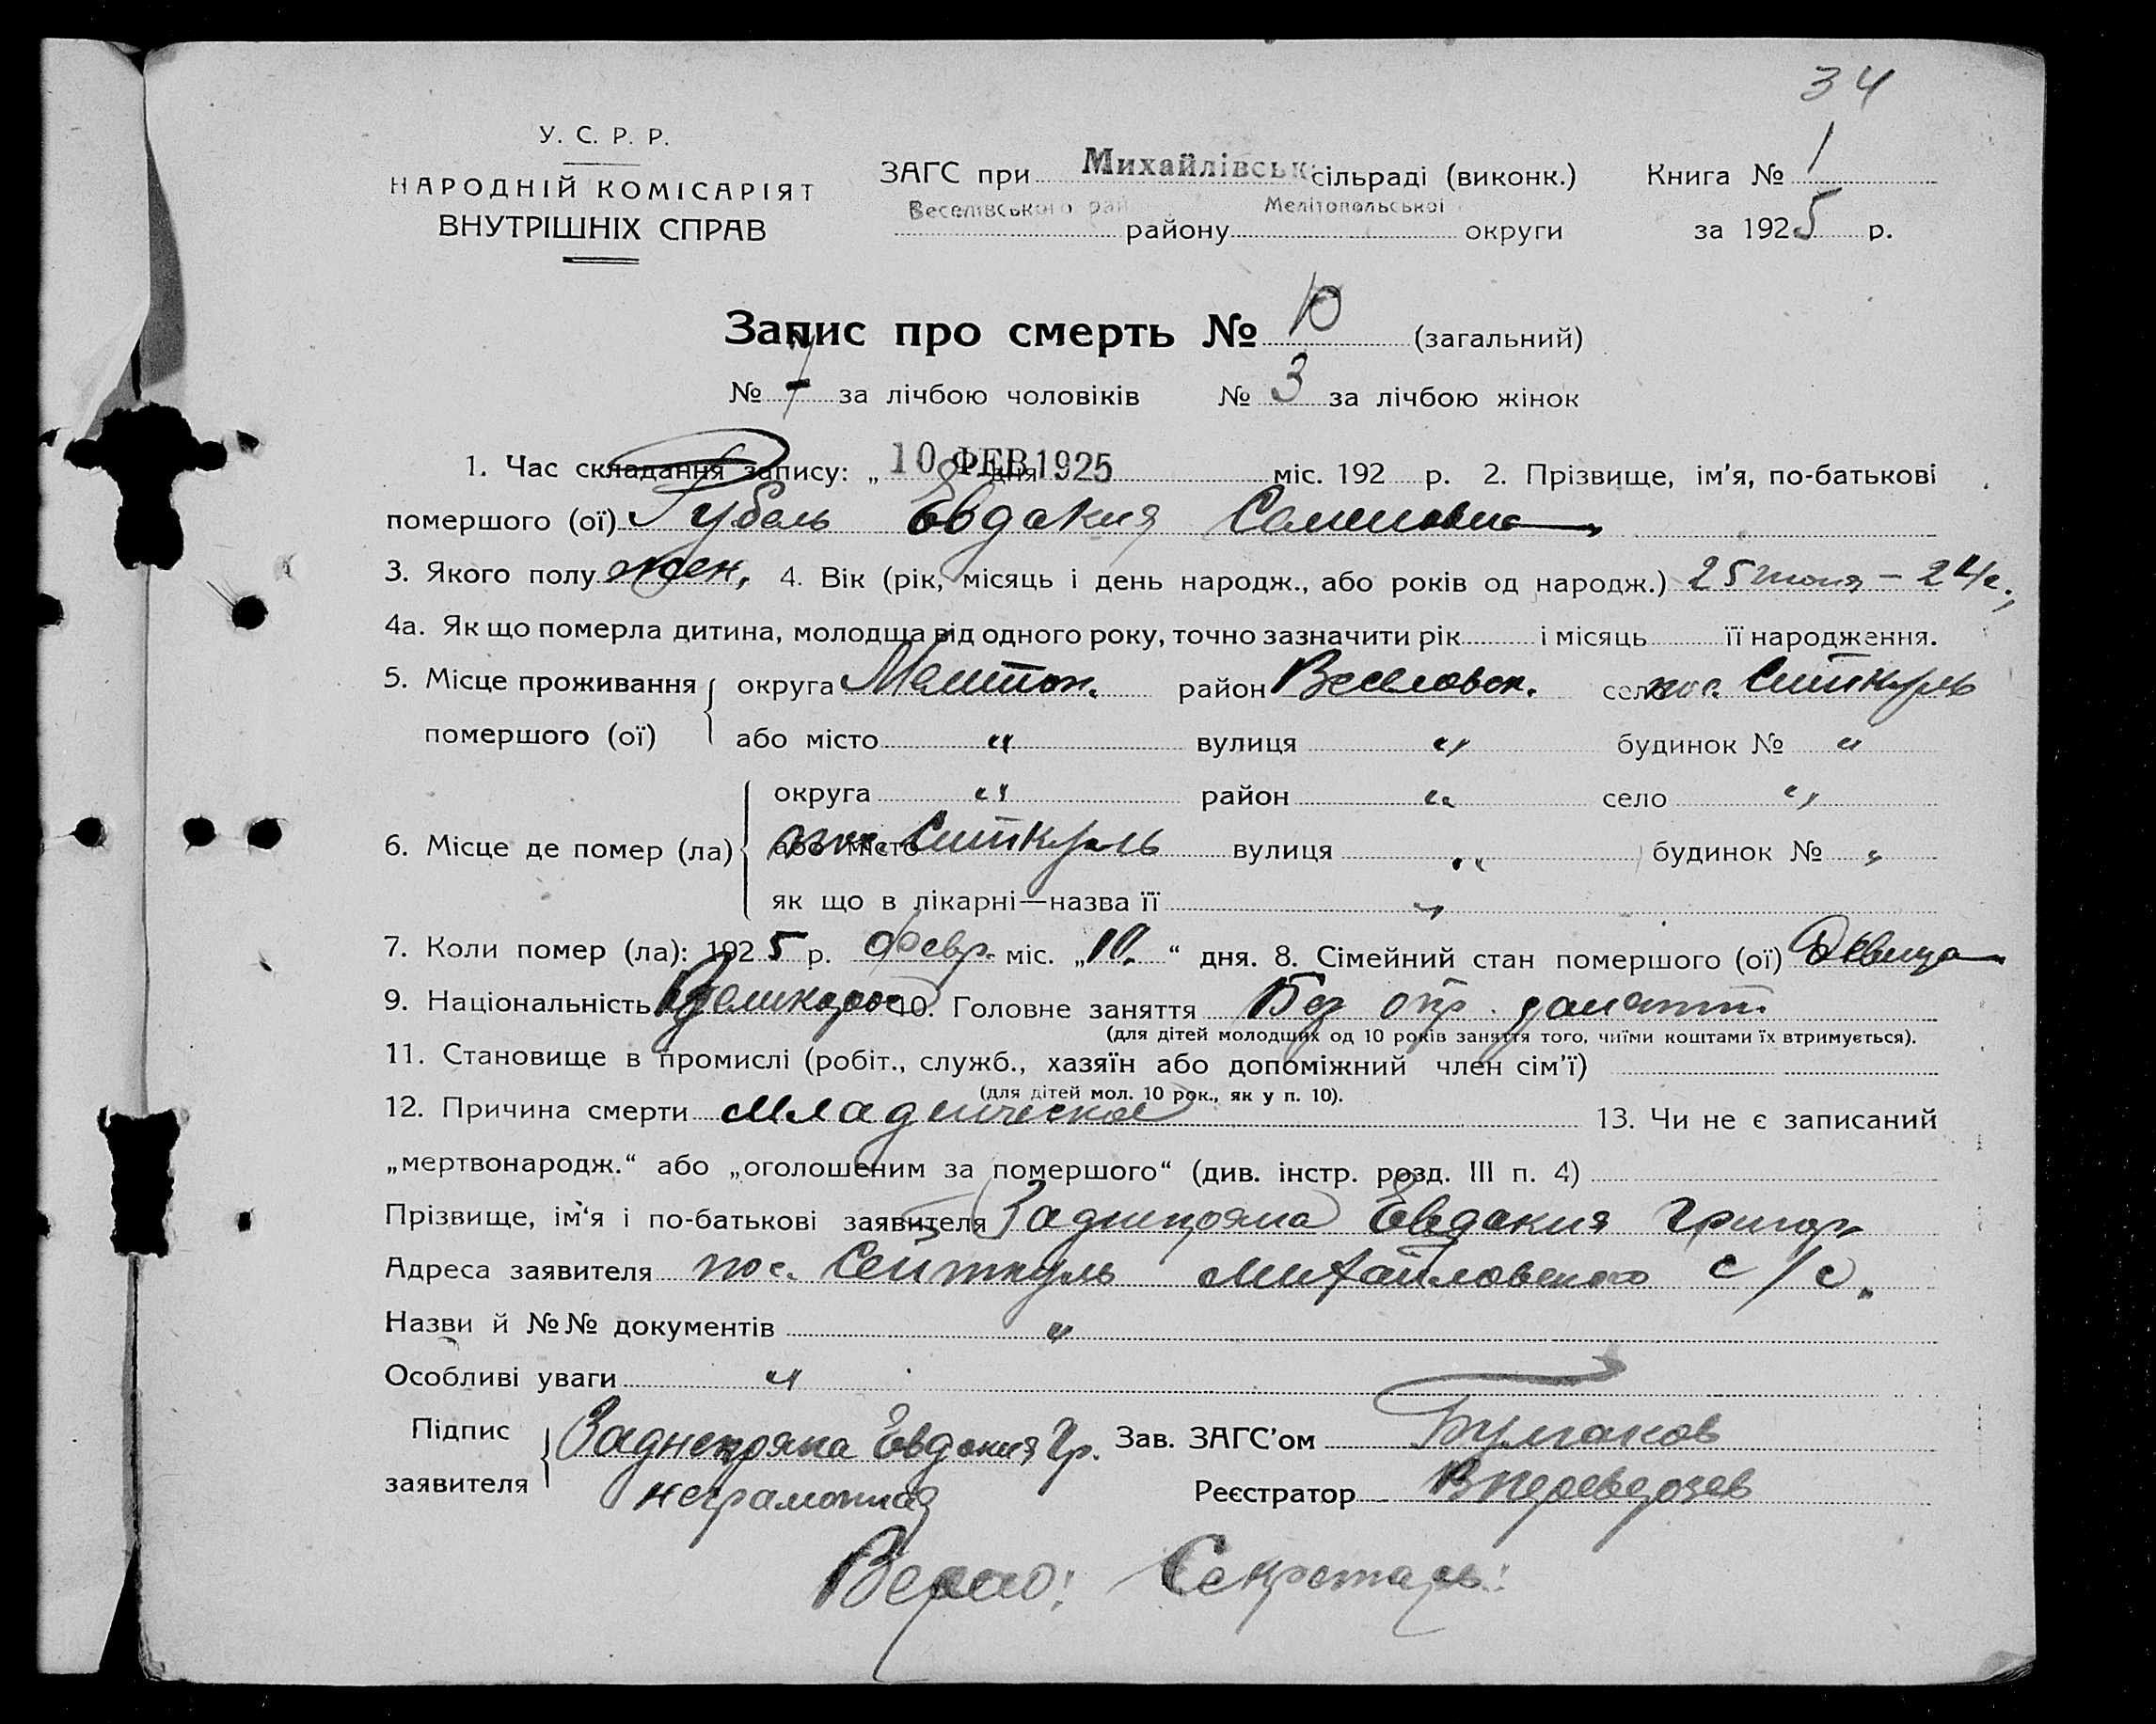 34
У. С. Р. Р.
НАРОДНІЙ КОМІСАРІЯТ
ВНУТРІШНІХ СПРАВ
ЗАГС при Михайлівськ сільраді (виконк.) Книга № 1
Веселівського рай Мелітопольської
району округи за 1925 р.
Запис про смерть № 10 (загальний)
№ за лічбою чоловіків № 3 за лічбою жінок
1. Час складання запису: „ 10 ФЕВ 1925 дня міс. 192 р. 2. Прізвище, ім'я, по-батькові
помершого (ої) Губель Евдакия Семеновна
3. Якого полу жен, 4. Вік (рік, місяць і день народж., або років од народж.) 25 июня – 24 г.,
4а. Як що померла дитина, молодща від одного року, точно зазначити рік і місяць її народження.
5. Місце проживання округа Мелитоп. район Веселовск. село пос. Ситкуль
помершого (ої) або місто " вулиця " будинок № "
округа " район " село "
6. Місце де помер (ла) або місто пос. Ситкуль вулиця " будинок № "
як що в лікарні—назва її "
7. Коли помер (ла): 1925 р. февр. міс. „10.“ дня. 8. Сімейний стан помершого (ої) Девица
9. Національність Великорос 10. Головне заняття Без опр. занятий
(для дітей молодщих од 10 років заняття того, чиїми коштами їх втримується).
11. Становище в промислі (робіт., служб., хазяїн або допоміжний член сім'ї)
(для дітей мол. 10 рок., як у п. 10).
12. Причина смерти младическая 13. Чи не є записаний
„мертвонародж.“ або „оголошеним за помершого“ (див. інстр. розд. III п. 4)
Прізвище, ім'я і по-батькові заявителя Заднепряна Евдакия Григор
Адреса заявителя пос. Сейткуль Михайловского с/с.
Назви й №№ документів "
Особливі уваги "
Підпис Заднепряна Евдакия Гр. Зав. ЗАГС'ом Булгаков
заявителя неграмотная Реєстратор В Переверзев
Верно: Секретарь: